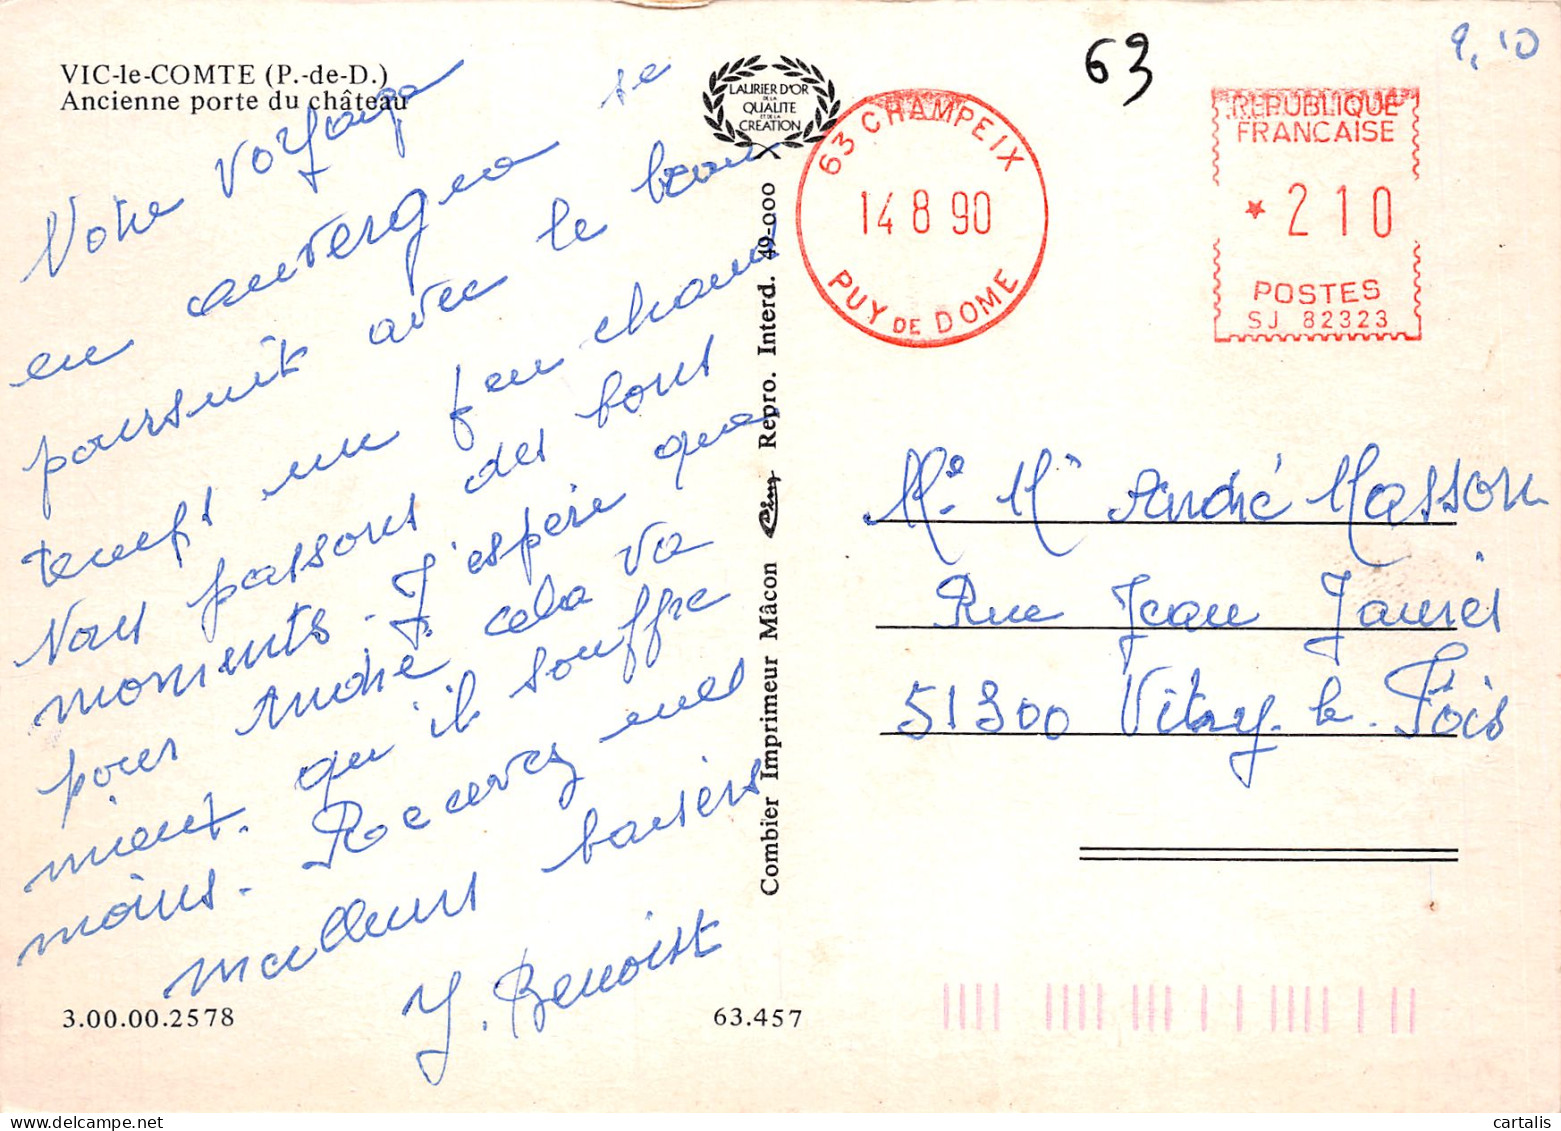 VIC-le-COMTE (P.-de-D.)
Ancienne porte du château
Votre voyage
en auvergne se
poursuit avec le beau
temps un peu chaud
Nous passons des bons
moments. J'espère que
pour André cela va
mieux. qu'il souffre
moins. Recevez mes
meilleurs baisers
Y. Benoist
3.00.00.2578
63.457
LAURIER D'OR
DE LA
QUALITE
ET DE LA
CREATION
Combier Imprimeur Mâcon Cim Repro. Interd. 49-000
63 CHAMPEIX
14 8 90
PUY DE DOME
63
9,10
REPUBLIQUE
FRANCAISE
* 210
POSTES
SJ 82323
Me Mr André Masson
Rue Jean Jaurès
51300 Vitry-le-Fois
cartalis